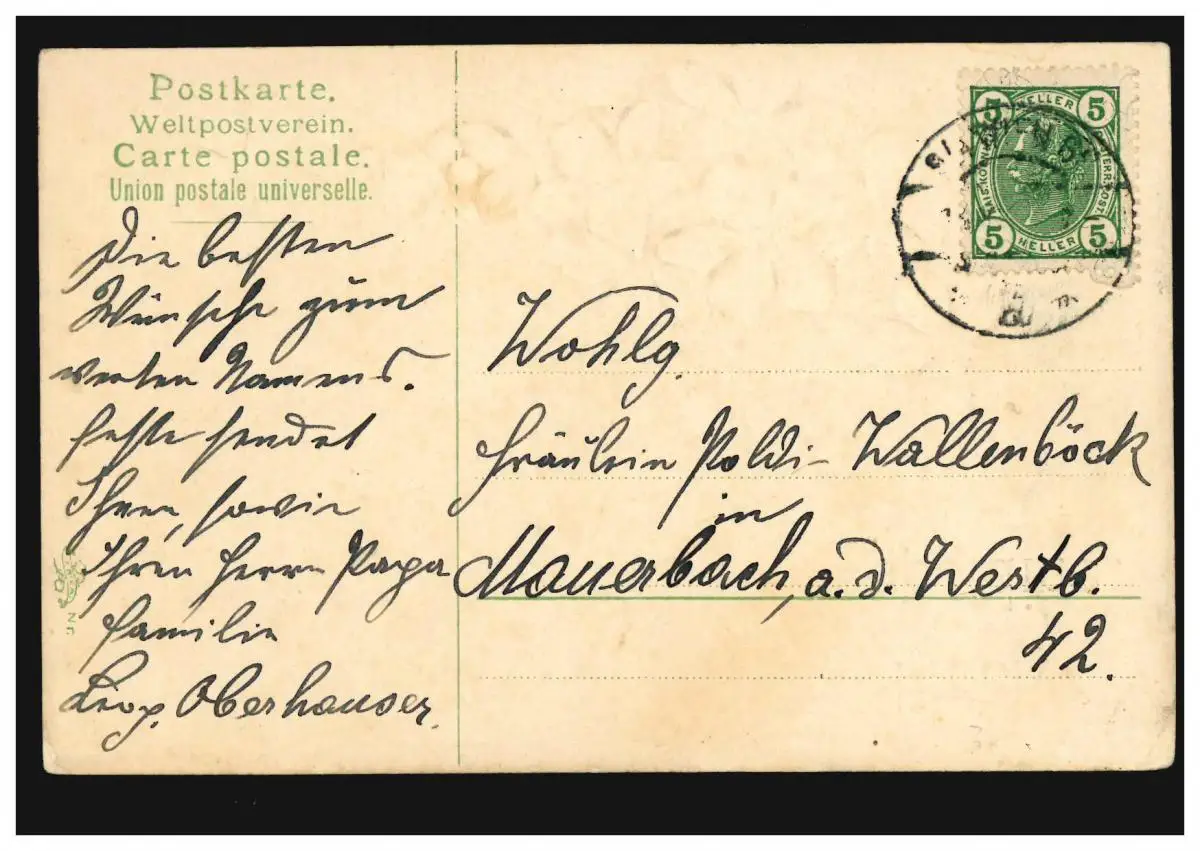 Postkarte.
Weltpostverein.
Carte postale.
Union postale universelle.
Die besten
Wünsche zum
werten Namens-
feste sendet
Ihnen, sowie
Ihren Herrn Papa
Familie
Leop. Oberhauser.
5 HELLER 5
5 HELLER 5
Wohlg.
Fräulein Poldi Wallenböck
in
Mauerbach, a. d. Westb.
42.